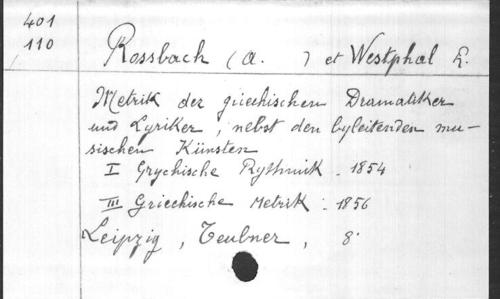 401
110
Rossbach (A. ) et Westphal L.
Metrik der griechischen Dramatiker
und Lyriker, nebst den byleitenden mu-
sischen Künsten
I Grychische Rythmik - 1854
III Griechische Metrik - 1856
Leipzig, Teubner, 8°